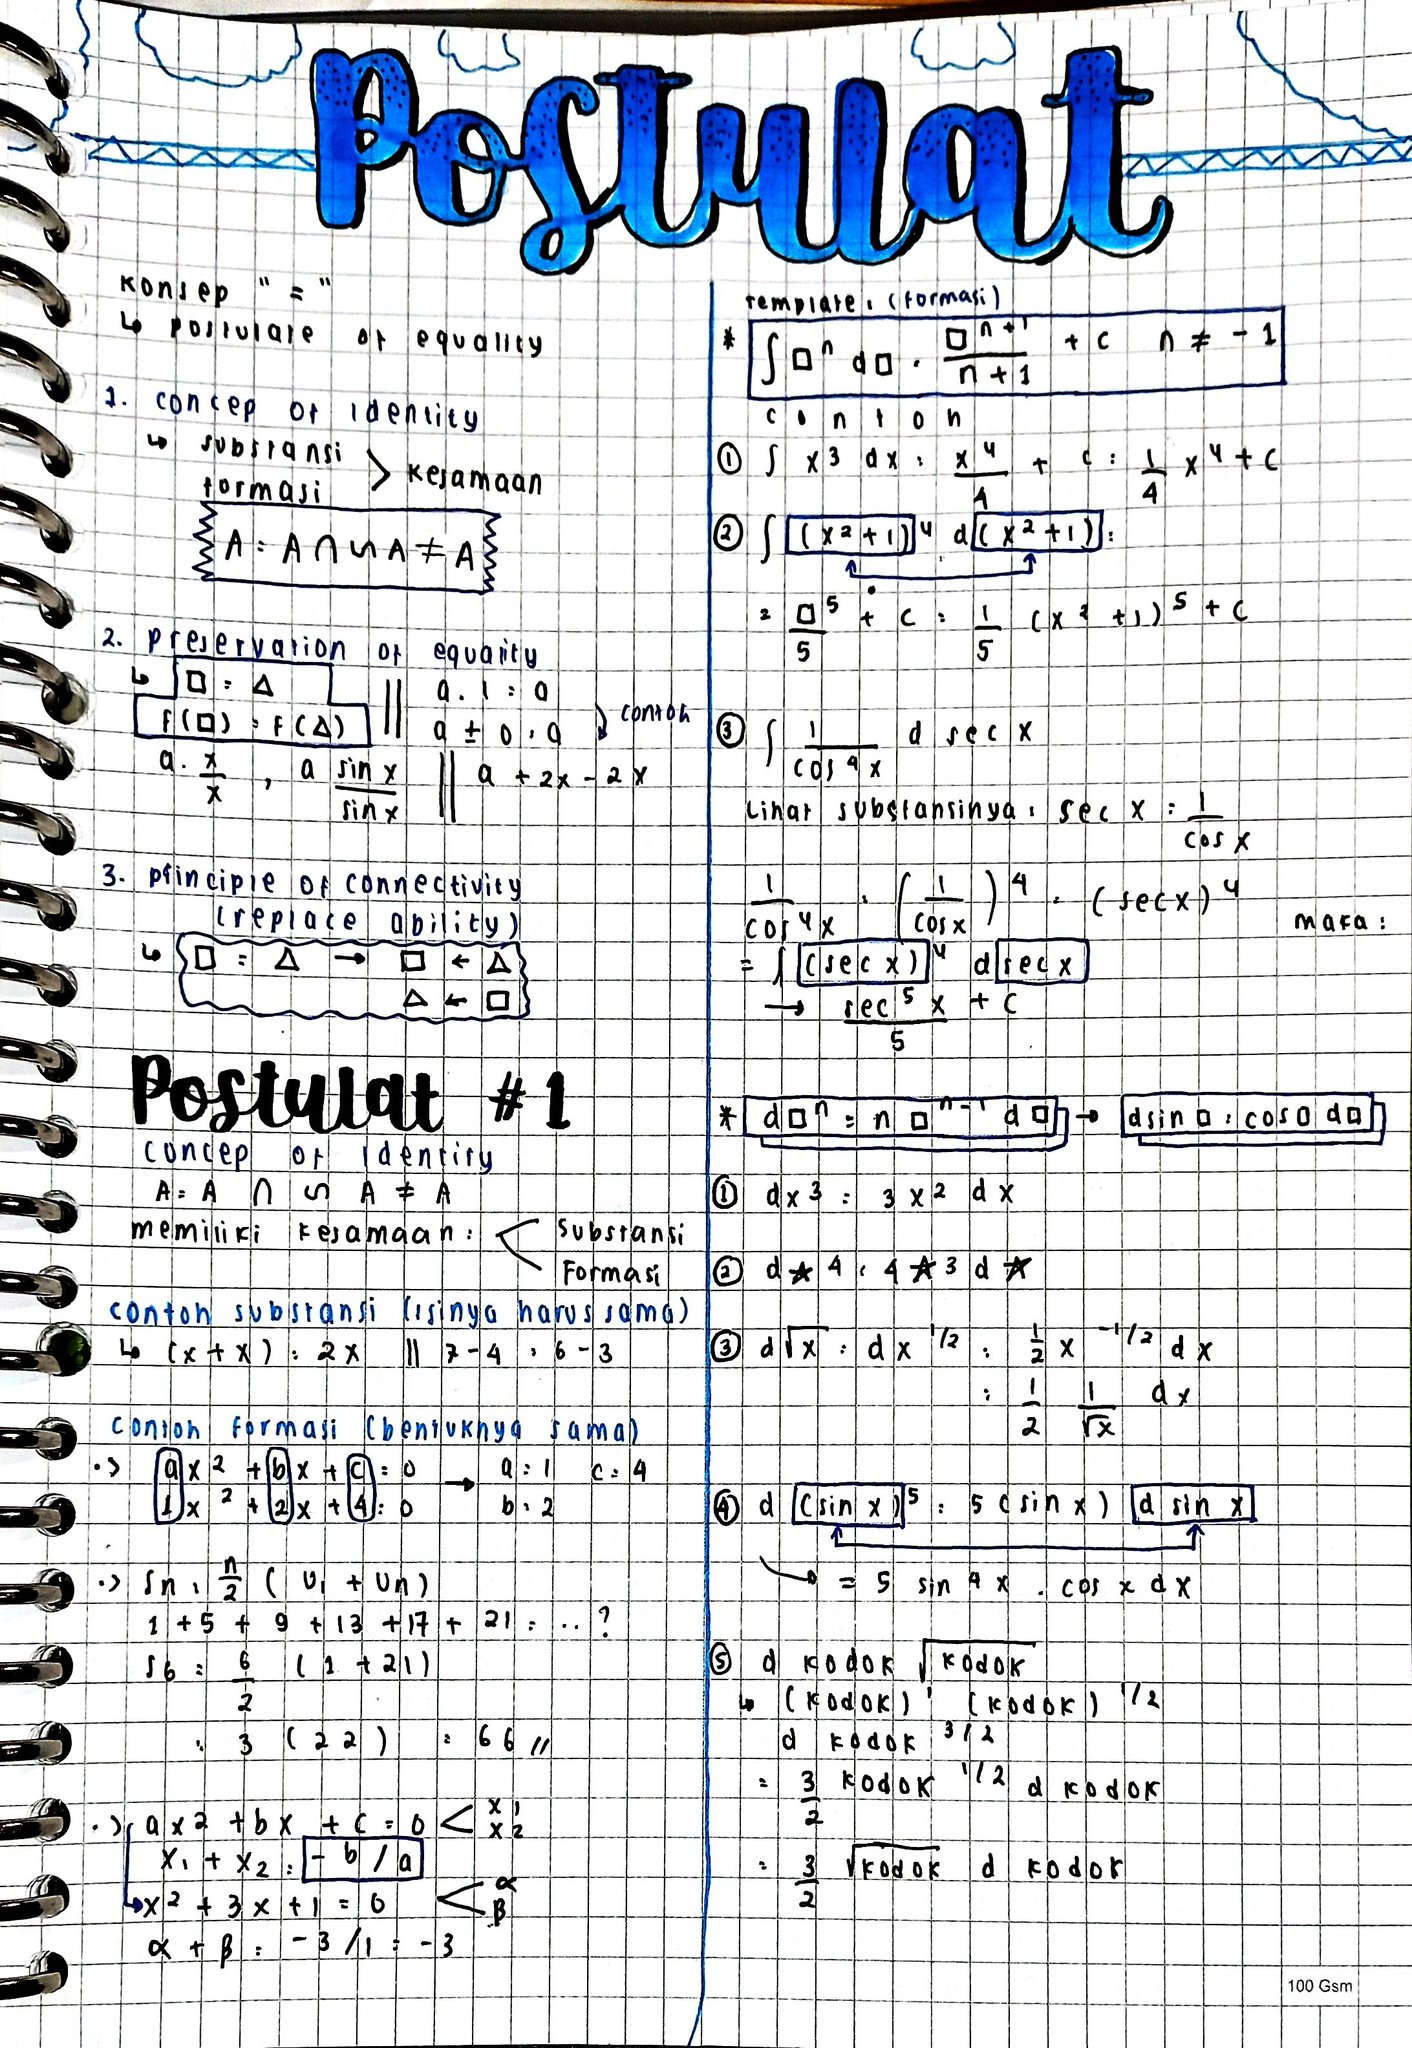 Postulat
Konsep " = "
↳ postulate of equality
1. concep of identity
↳ substansi
formasi > kesamaan
A = A ∩ ∽ A ≠ A
2. preservation of equality
↳ □ = △ || a . 1 = a
f(□) = f(△) || a ± 0 = a contoh
a . x/x , a sin x / sin x || a + 2x - 2x
3. principle of connectivity
(replace ability)
↳ □ = △ → □ ← △
△ ← □
Postulat #1
concep of identity
A = A ∩ ∽ A ≠ A
memiliki kesamaan : < substansi
Formasi
contoh substansi (isinya harus sama)
↳ (x + x) = 2x || 7 - 4 = 6 - 3
contoh formasi (bentuknya sama)
·> ax² + bx + c = 0 → a = 1 c = 4
1x² + 2x + 4 = 0 b = 2
·> Sn = n/2 ( U₁ + Un)
1 + 5 + 9 + 13 + 17 + 21 = .. ?
S6 = 6/2 (1 + 21)
= 3 (22) = 66 //
·> ax2 + bx + c = 0 < x1
x2
x₁ + x₂ = - b / a
↳ x² + 3x + 1 = 0 < α
β
α + β = -3/1 = -3
template : (formasi)
* ∫ □ⁿ d□ = □ⁿ⁺¹ / n + 1 + c n ≠ -1
contoh
① ∫ x³ dx = x⁴/4 + c = 1/4 x⁴ + c
② ∫ (x² + 1)⁴ d (x² + 1) =
= □⁵/5 + c = 1/5 (x² + 1)⁵ + c
③ ∫ 1/cos⁴x d sec x
Lihat substansinya : sec x = 1/cos x
1/cos⁴x = (1/cos x)⁴ = (sec x)⁴
maka :
= ∫ (sec x)⁴ d sec x
→ sec⁵ x / 5 + c
* d□ⁿ = n □ⁿ⁻¹ d□ → dsin□ = cos□ d□
① dx³ = 3x² dx
② d★4 = 4★3 d★
③ d√x = dx^1/2 = 1/2 x^-1/2 dx
= 1/2 1/√x dx
④ d (sin x)⁵ = 5 (sin x) d sin x
→ = 5 sin⁴ x . cos x dx
⑤ d kodok √kodok
↳ (kodok)¹ (kodok)^1/2
d kodok^3/2
= 3/2 kodok^1/2 d kodok
= 3/2 √kodok d kodok
100 Gsm